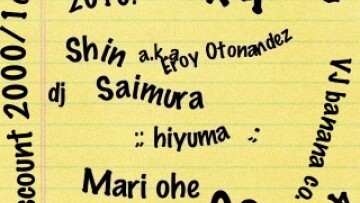 2010.
Shin a.k.a Eroy Otonandez
dj Saimura
:: hiyuma ::
Mari ohe
scount 2000/1
VJ banana co.